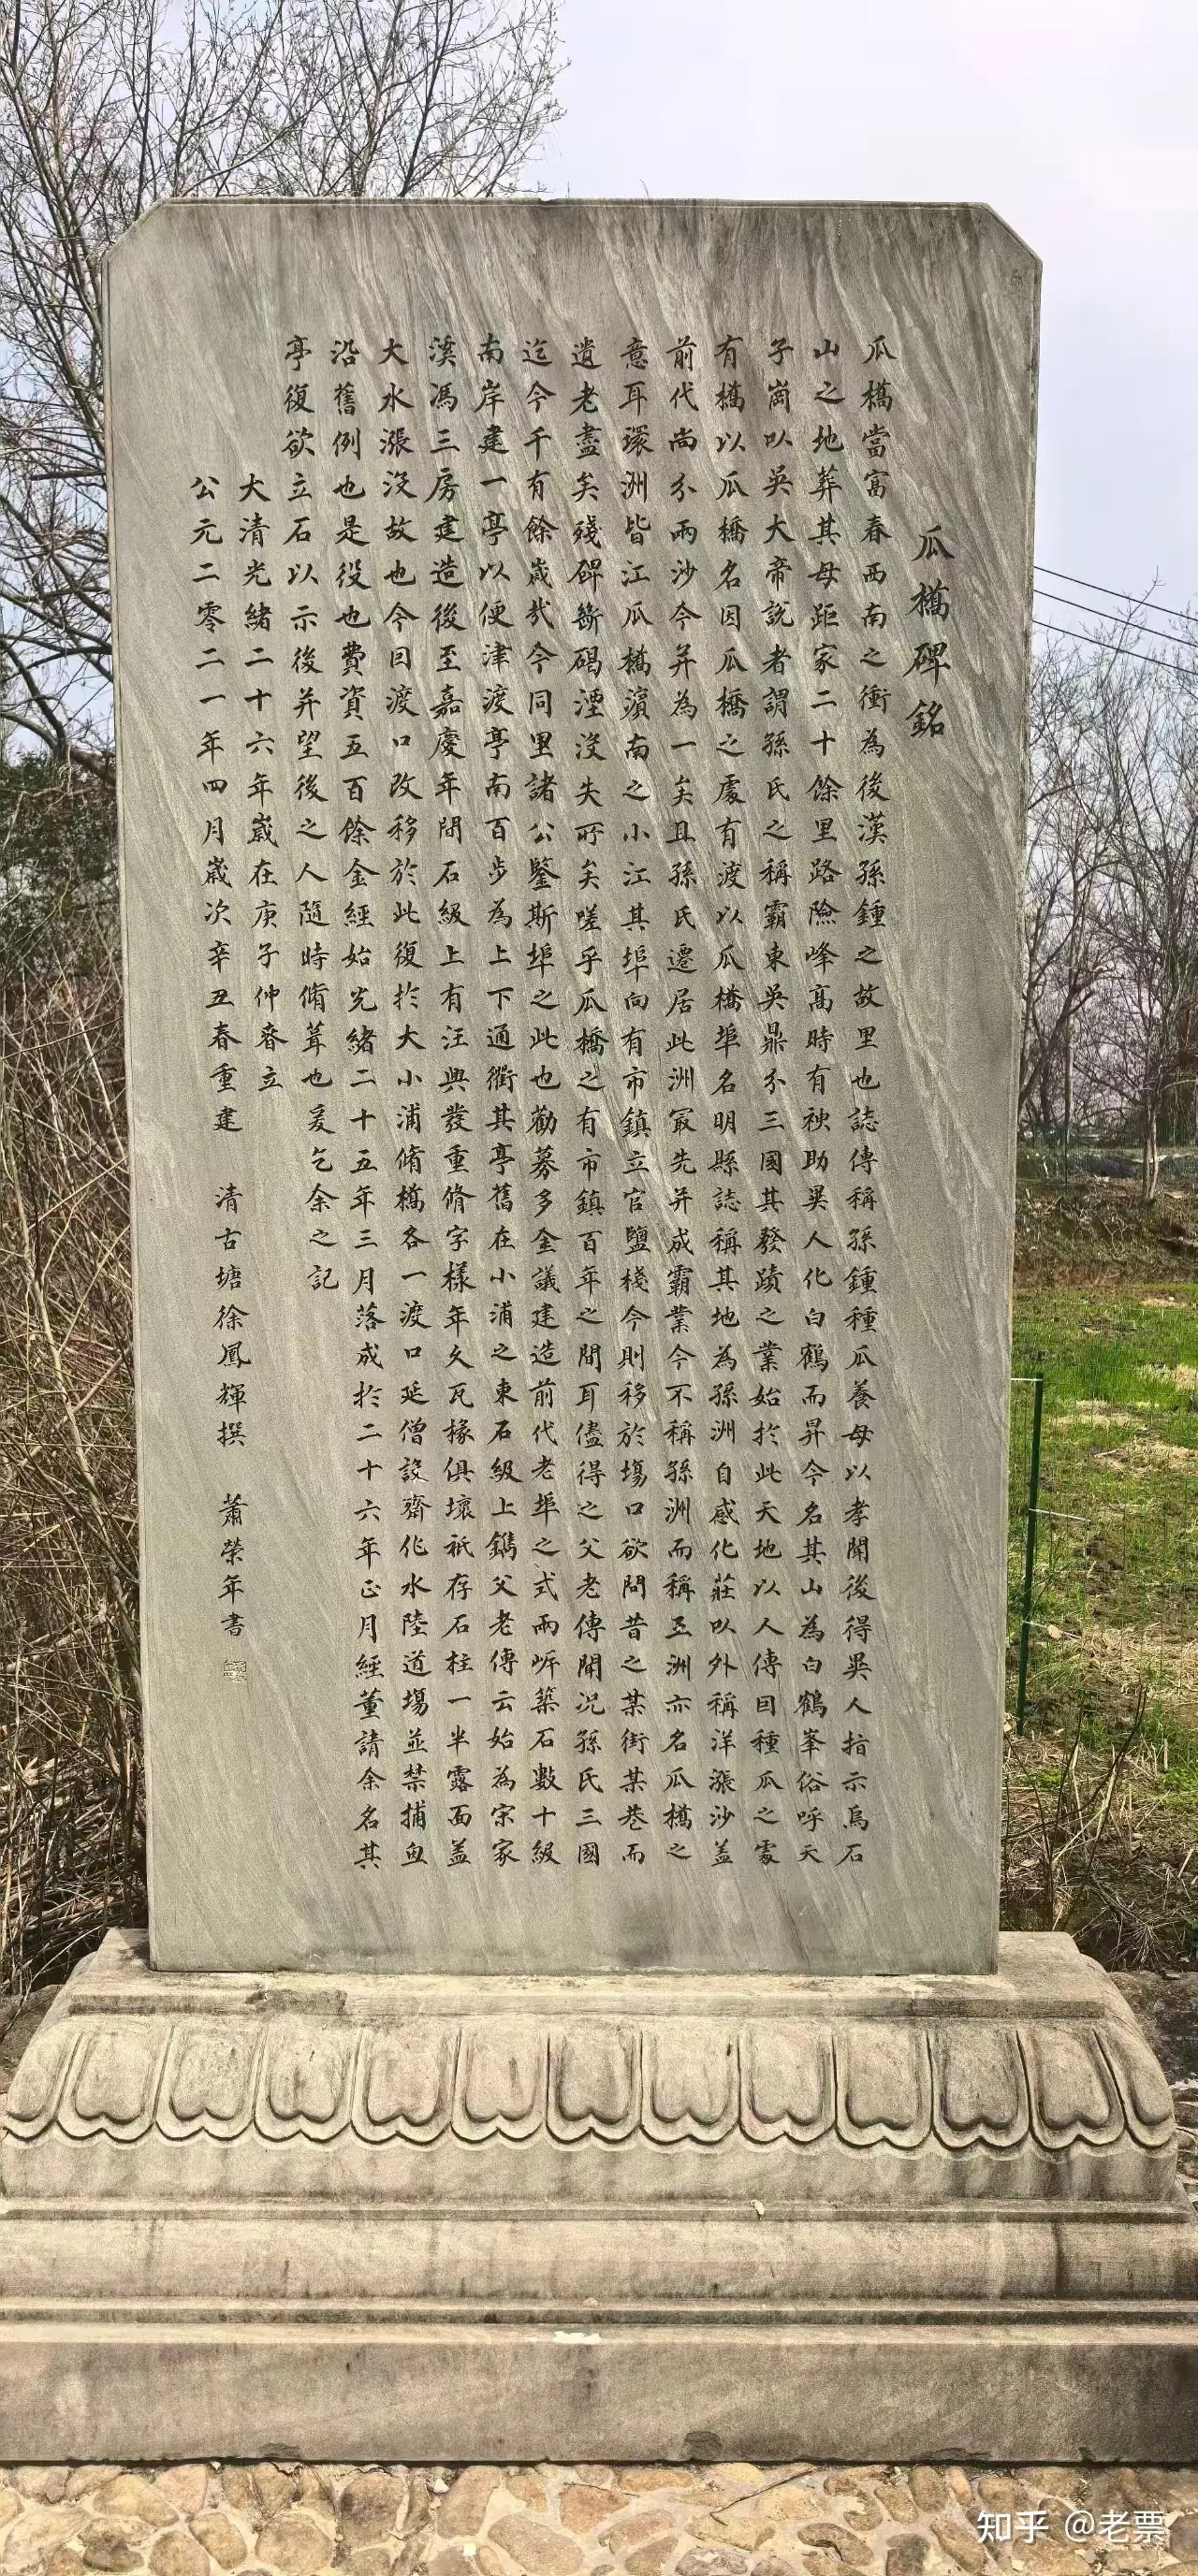 瓜橋碑銘
瓜橋當富春西南之衝為後漢孫鍾之故里也誌傳稱孫鍾種瓜養母以孝聞後得異人指示烏石
山之地葬其母距家二十餘里路險峰高時有神助異人化白鶴而昇今名其山為白鶴峯俗呼天
子崗以吳大帝說者謂孫氏之稱霸東吳鼎分三國其發蹟之業始於此天地以人傳目種瓜之處
有橋以瓜橋名因瓜橋之處有渡以瓜橋埠名明縣誌稱其地為孫洲自感化莊以外稱洋漲沙蓋
前代尚分兩沙今并為一矣且孫氏遷居此洲最先并成霸業今不稱孫洲而稱王洲亦名瓜橋之
意耳環洲皆江瓜橋濱南之小江其埠向有市鎮立官鹽棧今則移於塲口欲問昔之某街某巷而
遺老盡矣殘碑斷碣湮沒失所矣嗟乎瓜橋之有市鎮百年之間耳儘得之父老傳聞況孫氏三國
迄今千有餘歲哉今同里諸公鑒斯埠之此也勸募多金議建造前代老埠之式兩岸築石數十級
南岸建一亭以便津渡亭南百步為上下通衢其亭舊在小浦之東石級上鐫父老傳云始為宗家
溪馮三房建造後至嘉慶年間石級上有汪興發重脩字樣年久瓦椽俱壞衹存石柱一半露面蓋
大水漲沒故也今因渡口改移於此復於大小浦脩橋各一渡口延僧設齋作水陸道塲並禁捕魚
沿舊例也是役也費資五百餘金經始光緒二十五年三月落成於二十六年正月經董請余名其
亭復欲立石以示後并望後之人隨時脩葺也爰乞余之記
大清光緒二十六年歲在庚子仲春立
公元二零二一年四月歲次辛丑春重建　清古塘徐鳳輝撰　蕭榮年書
知乎 @老票